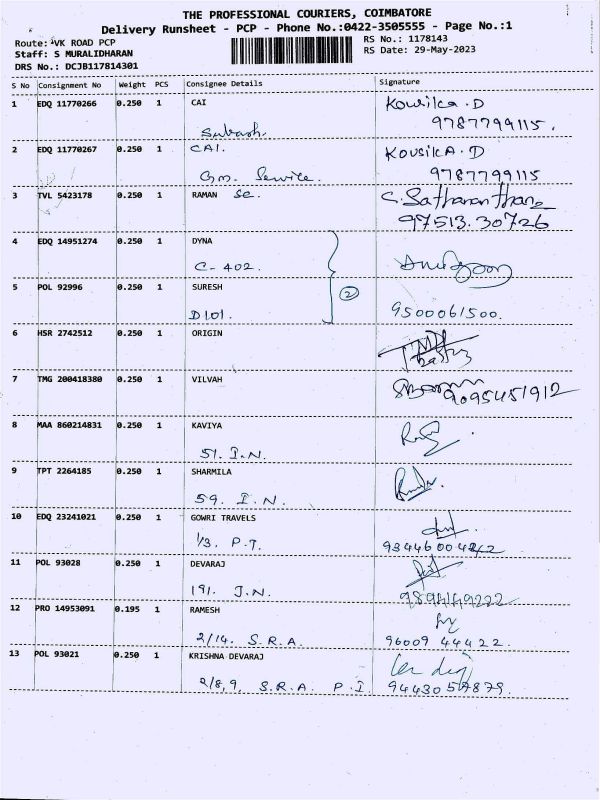 THE PROFESSIONAL COURIERS, COIMBATORE
Delivery Runsheet - PCP - Phone No.:0422-3505555 - Page No.:1
Route: VK ROAD PCP
RS No.: 1178143
Staff: S MURALIDHARAN
RS Date: 29-May-2023
DRS No.: DCJB117814301
S No Consignment No Weight PCS Consignee Details Signature
1 EDQ 11770266 0.250 1 CAI Kowsika.D
Subash 9787799115.
2 EDQ 11770267 0.250 1 CAI. KousikA.D
Bm. Service. 9787799115
3 TVL 5423178 0.250 1 RAMAN sc. C. Satharanthan
97513.30726
4 EDQ 14951274 0.250 1 DYNA
C-402.
5 POL 92996 0.250 1 SURESH 2
D101. 9500061500.
6 HSR 2742512 0.250 1 ORIGIN
7 TMG 200418380 0.250 1 VILVAH
9095451912
8 MAA 860214831 0.250 1 KAVIYA
51. I.N.
9 TPT 2264185 0.250 1 SHARMILA
59. I.N.
10 EDQ 23241021 0.250 1 GOWRI TRAVELS
1/3. P.T.
11 POL 93028 0.250 1 DEVARAJ
191. J.N.
12 PRO 14953091 0.195 1 RAMESH
2/14. S.R.A. 96009 44422.
13 POL 93021 0.250 1 KRISHNA DEVARAJ
2/8,9, S.R.A. P.I 9443057879.